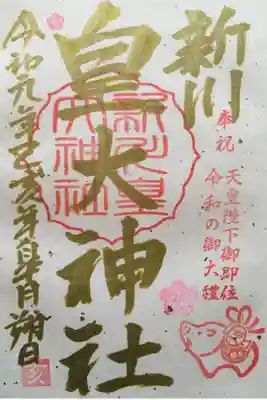 新川
皇大神社
奉祝
天皇陛下御即位
令和の御大禮
新川皇大神社
令和元年己亥年皐月朔日
亥